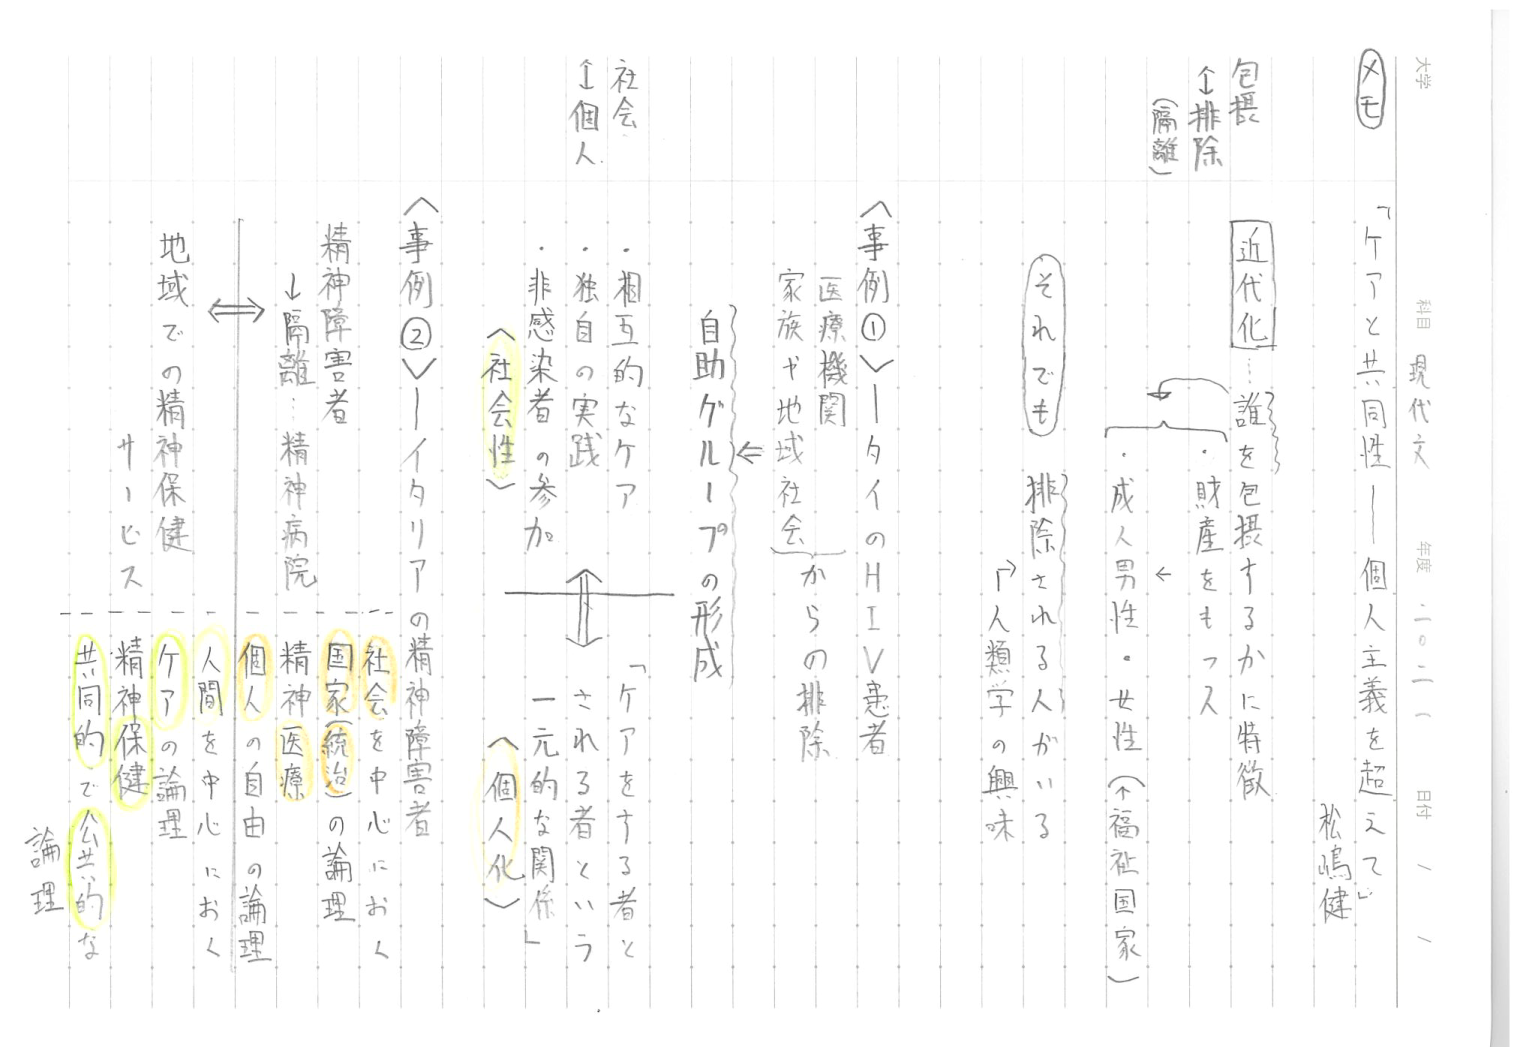 大学
科目 現代文 年度 二〇二一 日付 / /
メモ
「ケアと共同性――個人主義を超えて」
松嶋健
包摂
↕排除
(隔離)
近代化…誰を包摂するかに特徴
・財産をもつ人
↓
・成人男性・女性(↑福祉国家)
それでも 排除される人がいる
↱人類学の興味
〈事例①〉―タイのHIV患者
医療機関
家族や地域社会
からの排除
⇓
自助グループの形成
社会
↕個人
・相互的なケア
・独自の実践
・非感染者の参加
〈社会性〉
⇔
「ケアをする者と
される者という
一元的な関係」
〈個人化〉
〈事例②〉―イタリアの精神障害者
精神障害者
→隔離…精神病院
社会を中心におく
国家(統治)の論理
精神医療
個人の自由の論理
⇕
地域での精神保健
サービス
人間を中心におく
ケアの論理
精神保健
共同的で公共的な
論理